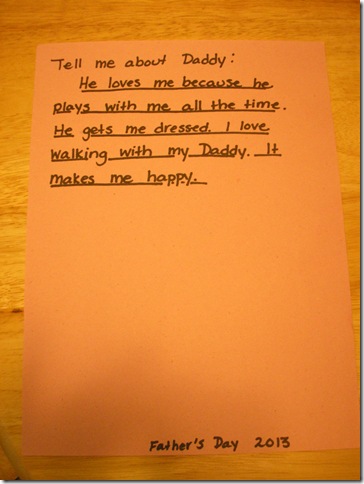 Tell me about Daddy:
He loves me because he
plays with me all the time.
He gets me dressed. I love
walking with my Daddy. It
makes me happy.
Father's Day 2013